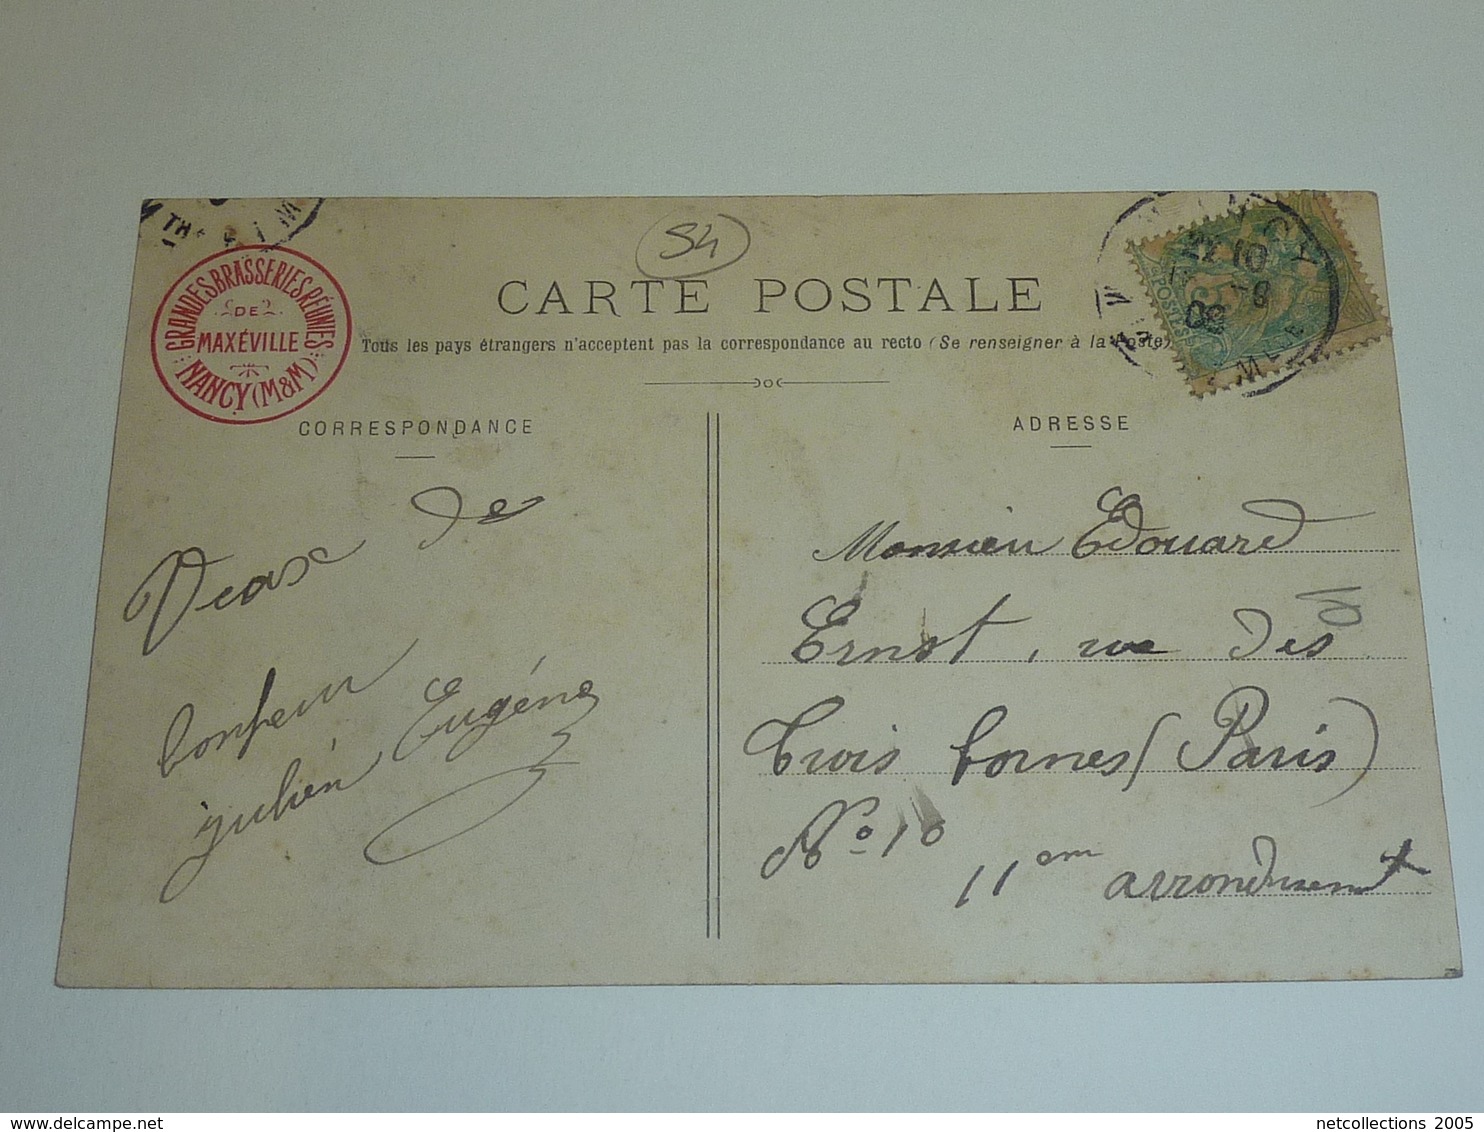 54
CARTE POSTALE
Tous les pays étrangers n'acceptent pas la correspondance au recto (Se renseigner à la Poste)
GRANDES BRASSERIES RÉUNIES
DE
MAXÉVILLE
NANCY (M&M)
CORRESPONDANCE
de
julien Eugène
ADRESSE
Monsieur Edouard
Ernst, rue des
trois bornes (Paris)
No 10
11em arrondisement
NANCY
POSTES
www.delcampe.net
netcollections 2005